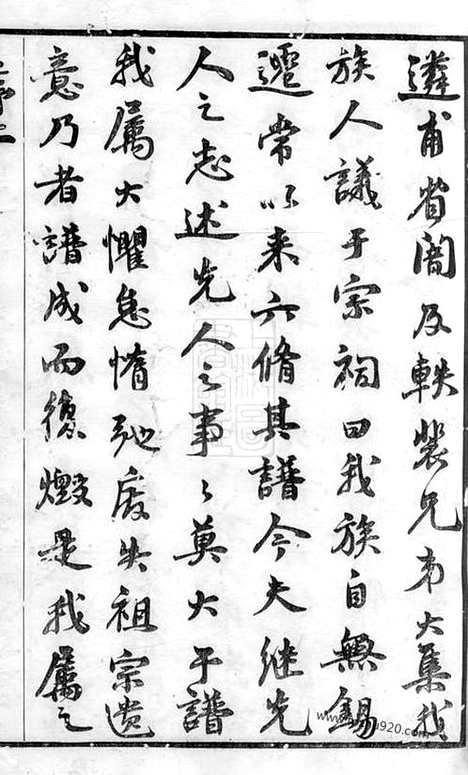 遴甫省闇及軼裴兄弟大集我
族人議于宗祠曰我族自無錫
遷常以来六脩其譜今夫继先
人之志述先人之事〻莫大于譜
我属大懼怠惰弛廢失祖宗遗
意乃者譜成而復燬是我属之